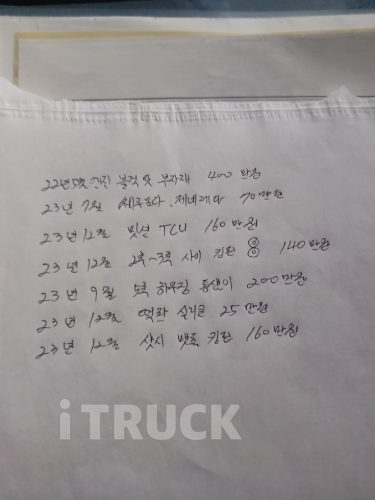 22년 5월 엔진 볼링 및 부자재 400 만원
23년 7월 쎄루모다. 제네레다 70만원
23년 12월 밋션 TCU 160만원
23년 12월 2축~3축 사이 킹핀 8 140만원
23년 9월 5축 하우징 통갈이 200만원
23년 12월 떡판 실리콘 25만원
23년 12월 샷시 뱃드 킹핀 160만원
iTRUCK